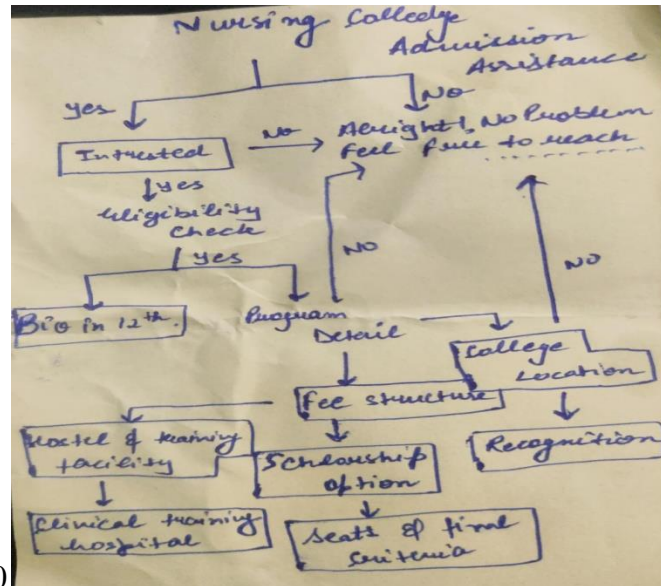 Nursing Colledge
Admission
Assistance
Yes
No
Intrested
No
Alright!, No Problem
Feel free to reach
Yes
eligibility
check
Yes
NO
NO
Bio in 12th.
Program
Detail
College
Location
Fee structure
Hostel & training
facility
Scholarship
option
Recognition
Clinical training
hospital
Seats & final
criteria
)